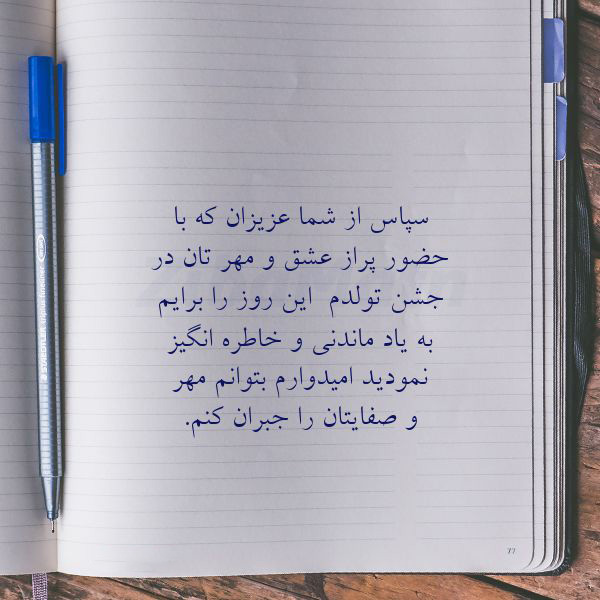 سپاس از شما عزیزان که با
حضور پراز عشق و مهر تان در
جشن تولدم  این روز را برایم
به یاد ماندنی و خاطره انگیز
نمودید امیدوارم بتوانم مهر
و صفایتان را جبران کنم.
77
STAEDTLER triplus fineliner